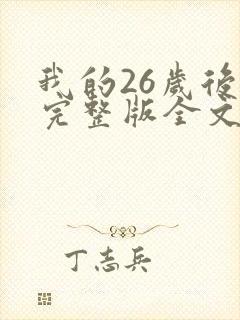 我的26歲後
完整版全文
丁志兵